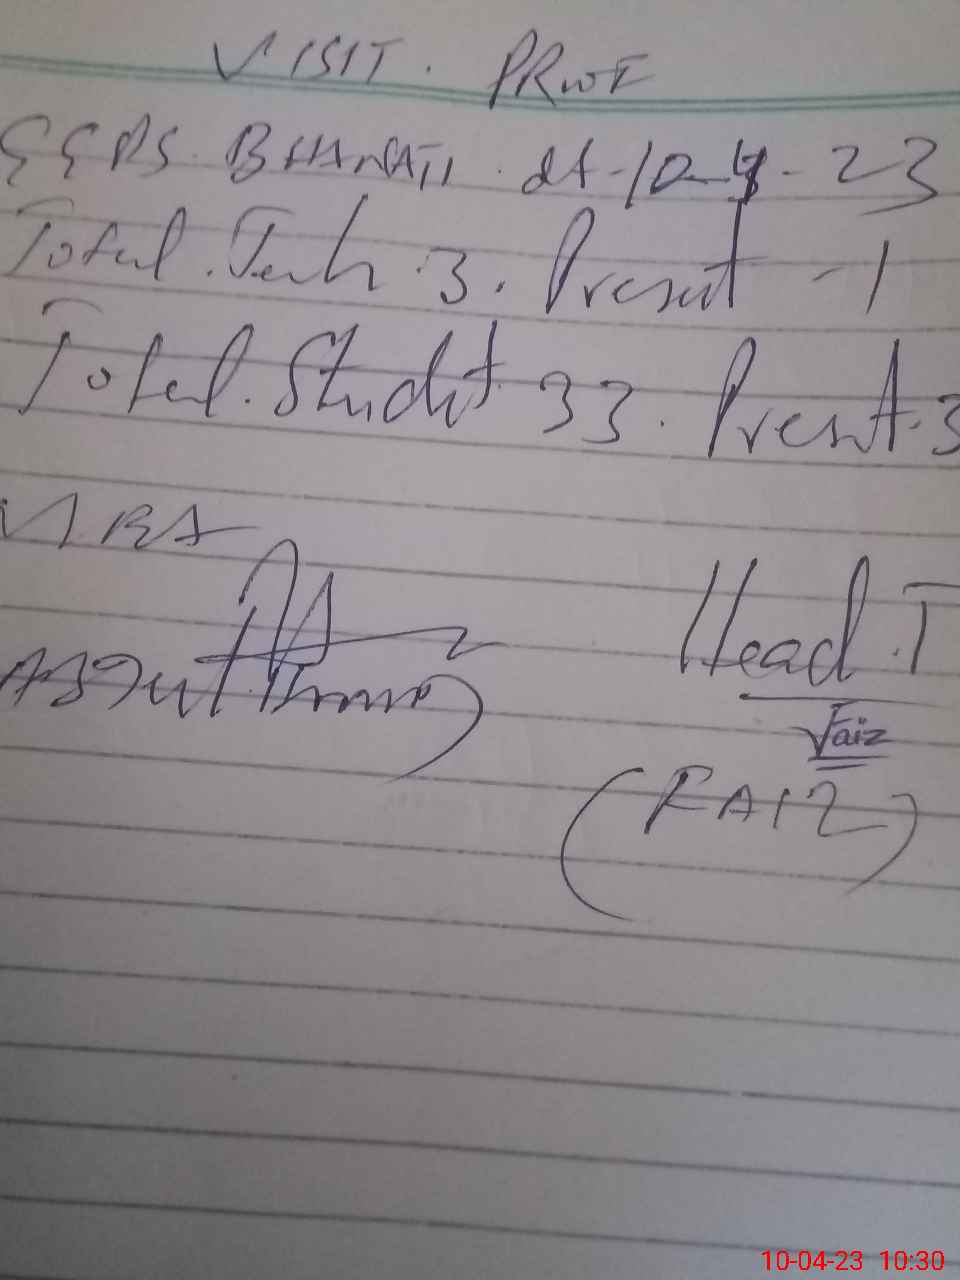 VISIT. PROOF
GGPS. BHANATI. dt-10-4-23
Total. Teach 3. Present -1
Total. Student 33. Present. 3
Head. T
Faiz
(FAIZ)
10-04-23 10:30